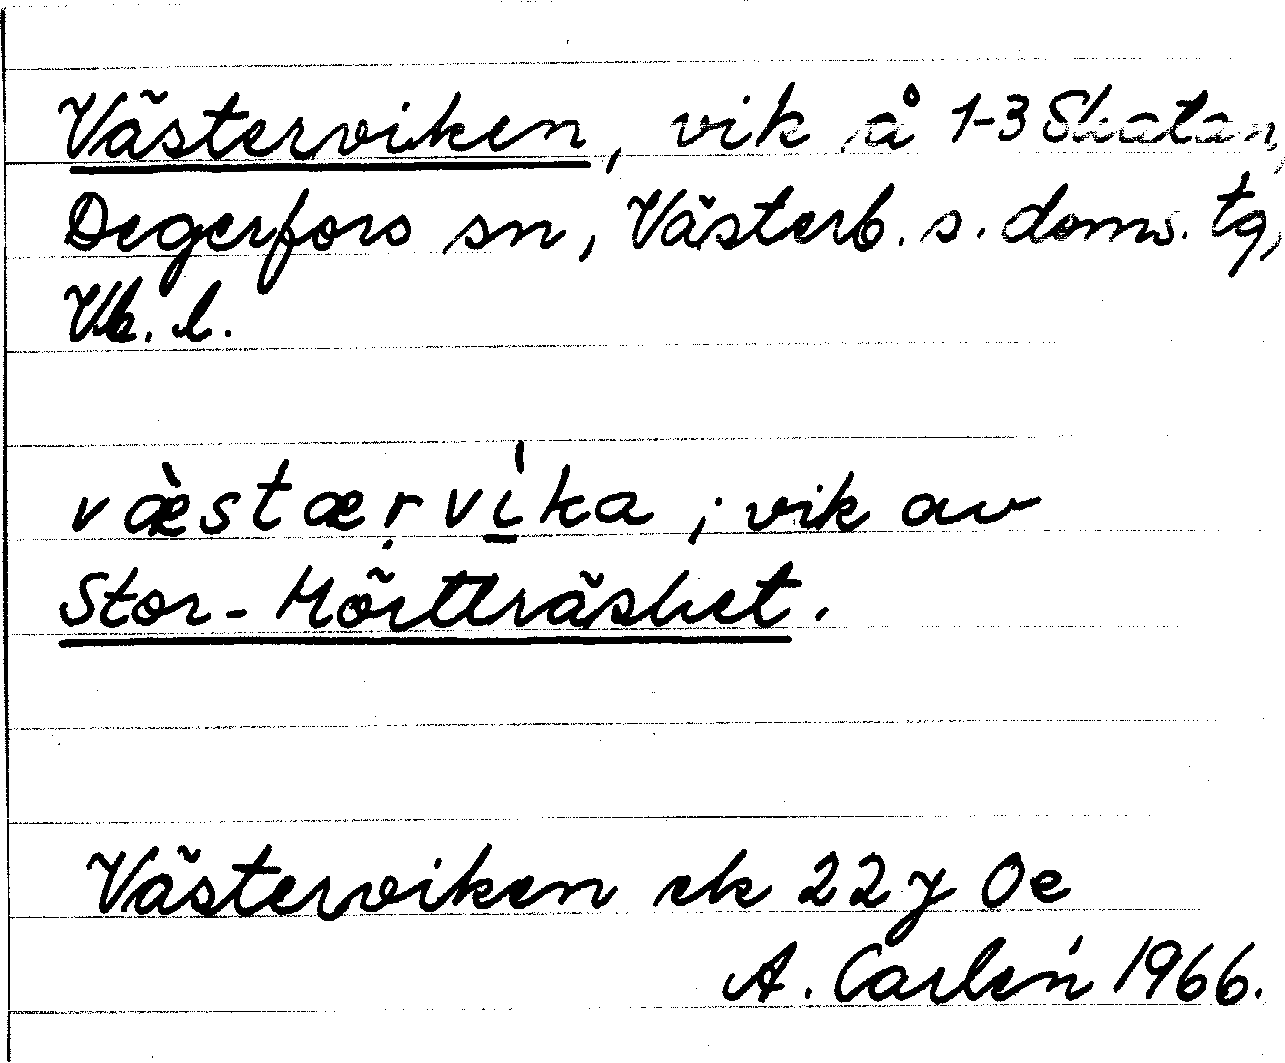 Västerviken, vik å 1-3 Skatan,
Degerfors sn, Västerb. s. doms. tg,
Vb. l.
væ̀stærvi̱̍ka ; vik av
Stor-Mörtträsket.
Västerviken ek 22 y Oe
A. Carlén 1966.